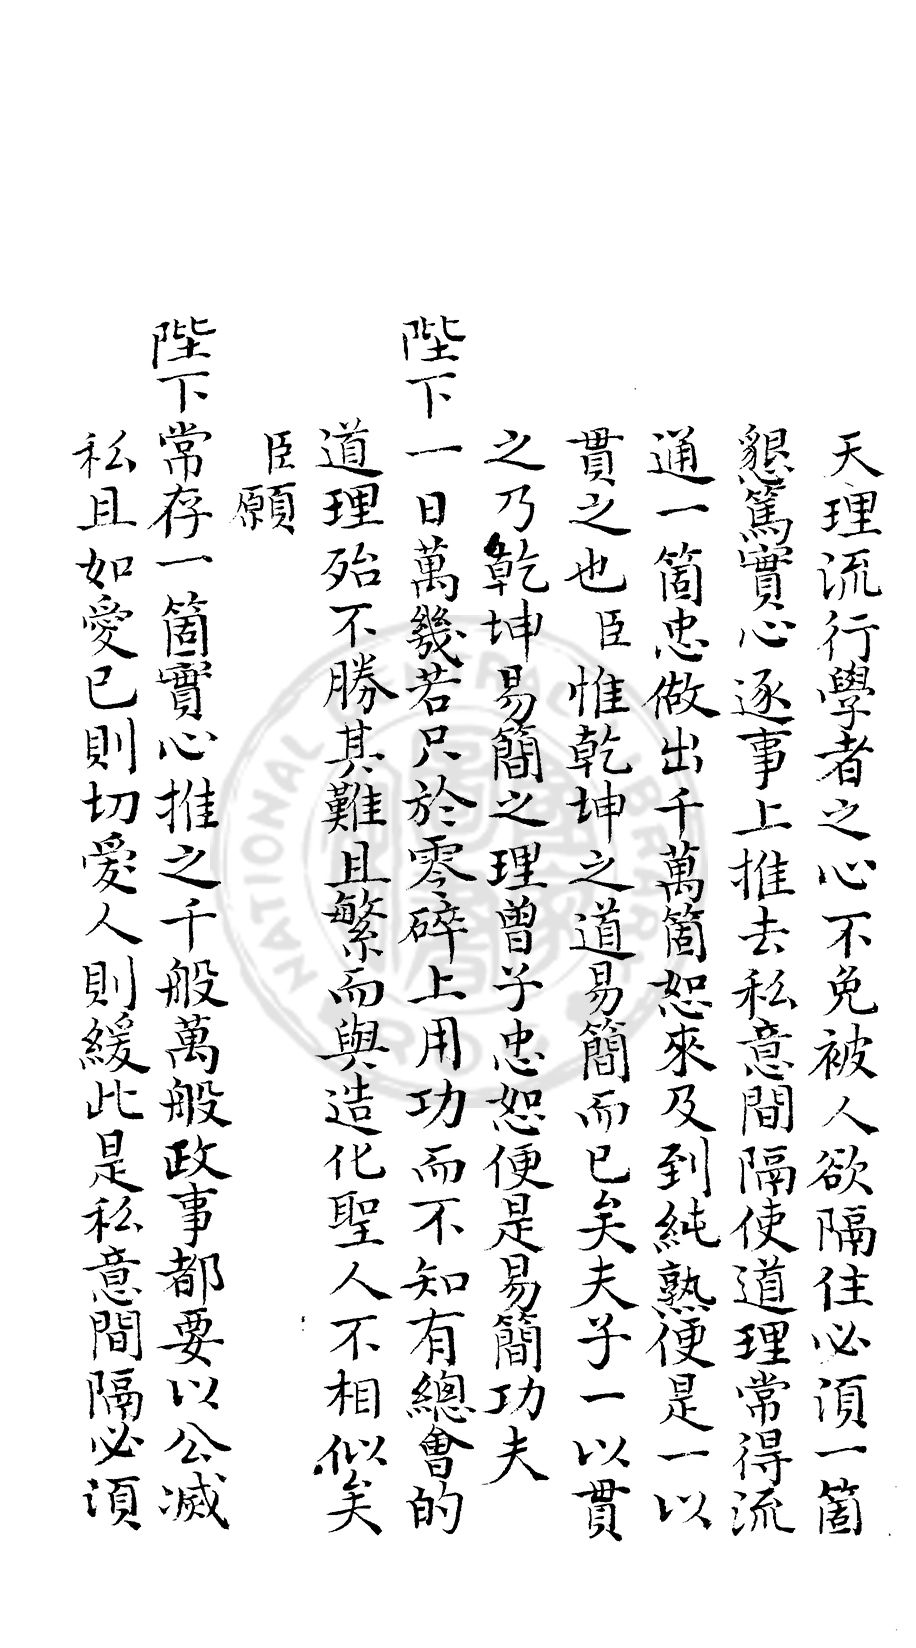 天理流行學者之心不免被人欲隔住必須一箇
懇篤實心逐事上推去私意間隔使道理常得流
通一箇忠做出千萬箇恕來及到純熟便是一以
貫之也臣惟乾坤之道易簡而已矣夫子一以貫
之乃乾坤易簡之理曾子忠恕便是易簡功夫
陛下一日萬幾若只於零碎上用功而不知有總會的
道理殆不勝其難且繁而與造化聖人不相似矣
臣願
陛下常存一箇實心推之千般萬般政事都要以公滅
私且如愛已則切愛人則緩此是私意間隔必須
NATIONAL CENTRAL LIBRARY